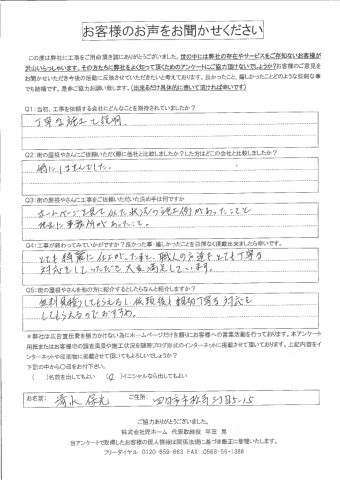 お客様のお声をお聞かせください
この度は弊社に工事をご用命頂き誠にありがとうございました。世の中には弊社の存在やサービスをご存知ないお客様が
沢山いらっしゃいます。その方たちに弊社をよく知って頂くためのアンケートにご協力頂けないでしょうか?お客様のご意見を
お聞かせいただき今後の活動に反映させていただきたいと考えております。良かったこと、嬉しかったことどのような些細な事
でも結構です。是非ご協力お願い致します。(出来るだけ具体的に書いて頂ければ幸いです)
Q1:当初、工事を依頼する会社にどんなことを期待されていましたか?
丁寧な施工と説明。
Q2:街の屋根やさんにご依頼いただく際に他社と比較しましたか?した方はどこの会社と比較しましたか?
特にしませんでした。
Q3:街の屋根やさんに工事をご依頼いただいた決め手は何ですか
ホームページを見て似た状況の施工例があったことと
地元に事務所があったこと。
Q4:工事が終わってみていかがですか?良かった事・嬉しかったことを忌憚なく頂戴出来ましたら幸いです。
とても綺麗に仕上がったまた、職人の方達もとても丁寧な
対応をしていただき大変満足しています。
Q5:街の屋根やさんを他の方に紹介するとしたらなんと紹介しますか?
無料見積りしてもらえるし、依頼後も親切丁寧な対応を
してもらえるのでおすすめ。
※弊社は広告宣伝費を極力かけない為にホームページだけを頼りにお客様への営業活動を行っております。本アンケート
用紙またはお客様宅の調査風景や施工状況を随時ブログ形式でのインターネットに掲載させて頂いております。上記内容をイ
ンターネットや印刷物に掲載させて頂いてもよろしいでしょうか?
下記の中から○印をお付下さい。
( )名前を出してもよい (○)イニシャルなら出してもよい
お名前: 清水
ご住所: 四日市市
ご協力ありがとうございました。
株式会社匠ホーム 代表取締役 平田 晃
当アンケートで取得したお客様の個人情報は関係法規に基づき厳正に管理いたします。
フリーダイヤル 0120-659-663 FAX 0568-55-1388